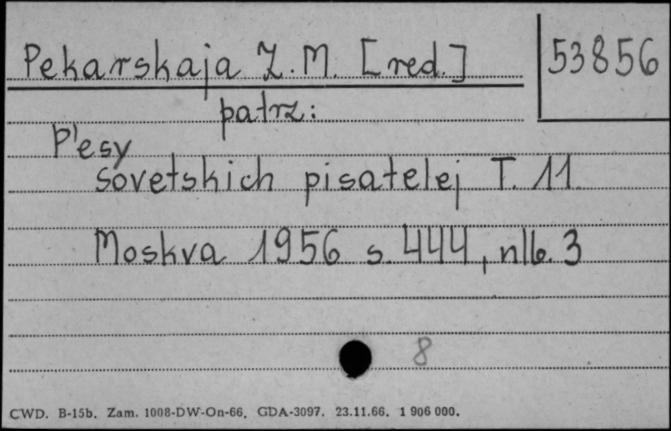 Pekarskaja Z. M. [red.]
53856
patrz:
P'esy
sovetskich pisatelej T. 11
Moskva 1956 s. 444, nlb. 3
8
CWD. B-15b. Zam. 1008-DW-On-66. GDA-3097. 23.11.66. 1 906 000.